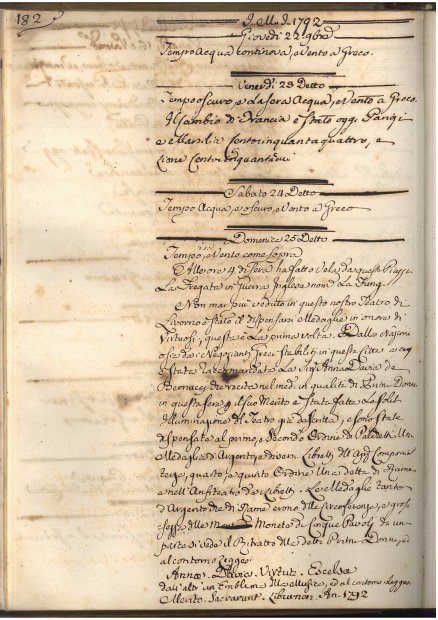 182
I. M. I. 1792
Giovedì 22 9bre
Tempo Acqua continova, e Vento a Greco.
Venerdì 23 Detto
Tempo oscuro, e La sera Acqua, e Vento a Greco.
Il Cambio di Francia è stato oggi Parigi
e Marsilia Centocinquantaquattro, e
Lione
Sabato 24 Detto
Tempo Acqua, e oscuro, e Vento a Greco
Domenica 25 Detto
Tempo, e Vento come sopra
Alle ore 4 di sera ha fatto vela da queste
La Fregata in Guerra Inglese nom.
Non mai più veduto in questo nostro Teatro di
Livorno è stato il dispensarsi Medaglie in onore di
Virtuosi, questa è La prima volta. Dallo
Negozianti Greci stabiliti in questa Città
è stata raccomandata La Sig.ra Anna Davia de
Bernucci che recita nel med. in qualità di Prima Donna
in questa sera il suo Merito è stata fatta La solita
Illuminazione di Teatro già descritta, e sono state
dispensate al primo, e Secondo Ordine di Palchetti Una
Medaglia d'Argento, e diversi Libretti
quarto, e quinto Ordine Una detta di Rame
e nell'Anfiteatro de Libretti. Le Medaglie tanto
d'Argento che di Rame erono della circonferenza, e gros
sezza della Moneta di Cinque Pavoli da un
parte si vede il Ritratto della detta Prima Donna, ed
al contorno Leggesi
Anna. Davies. Virtute. Excelsa
dall'altra un Emblema allusivo, ed al contorno Leggesi
Merito. Sacravant. Liburnion. An. 1792